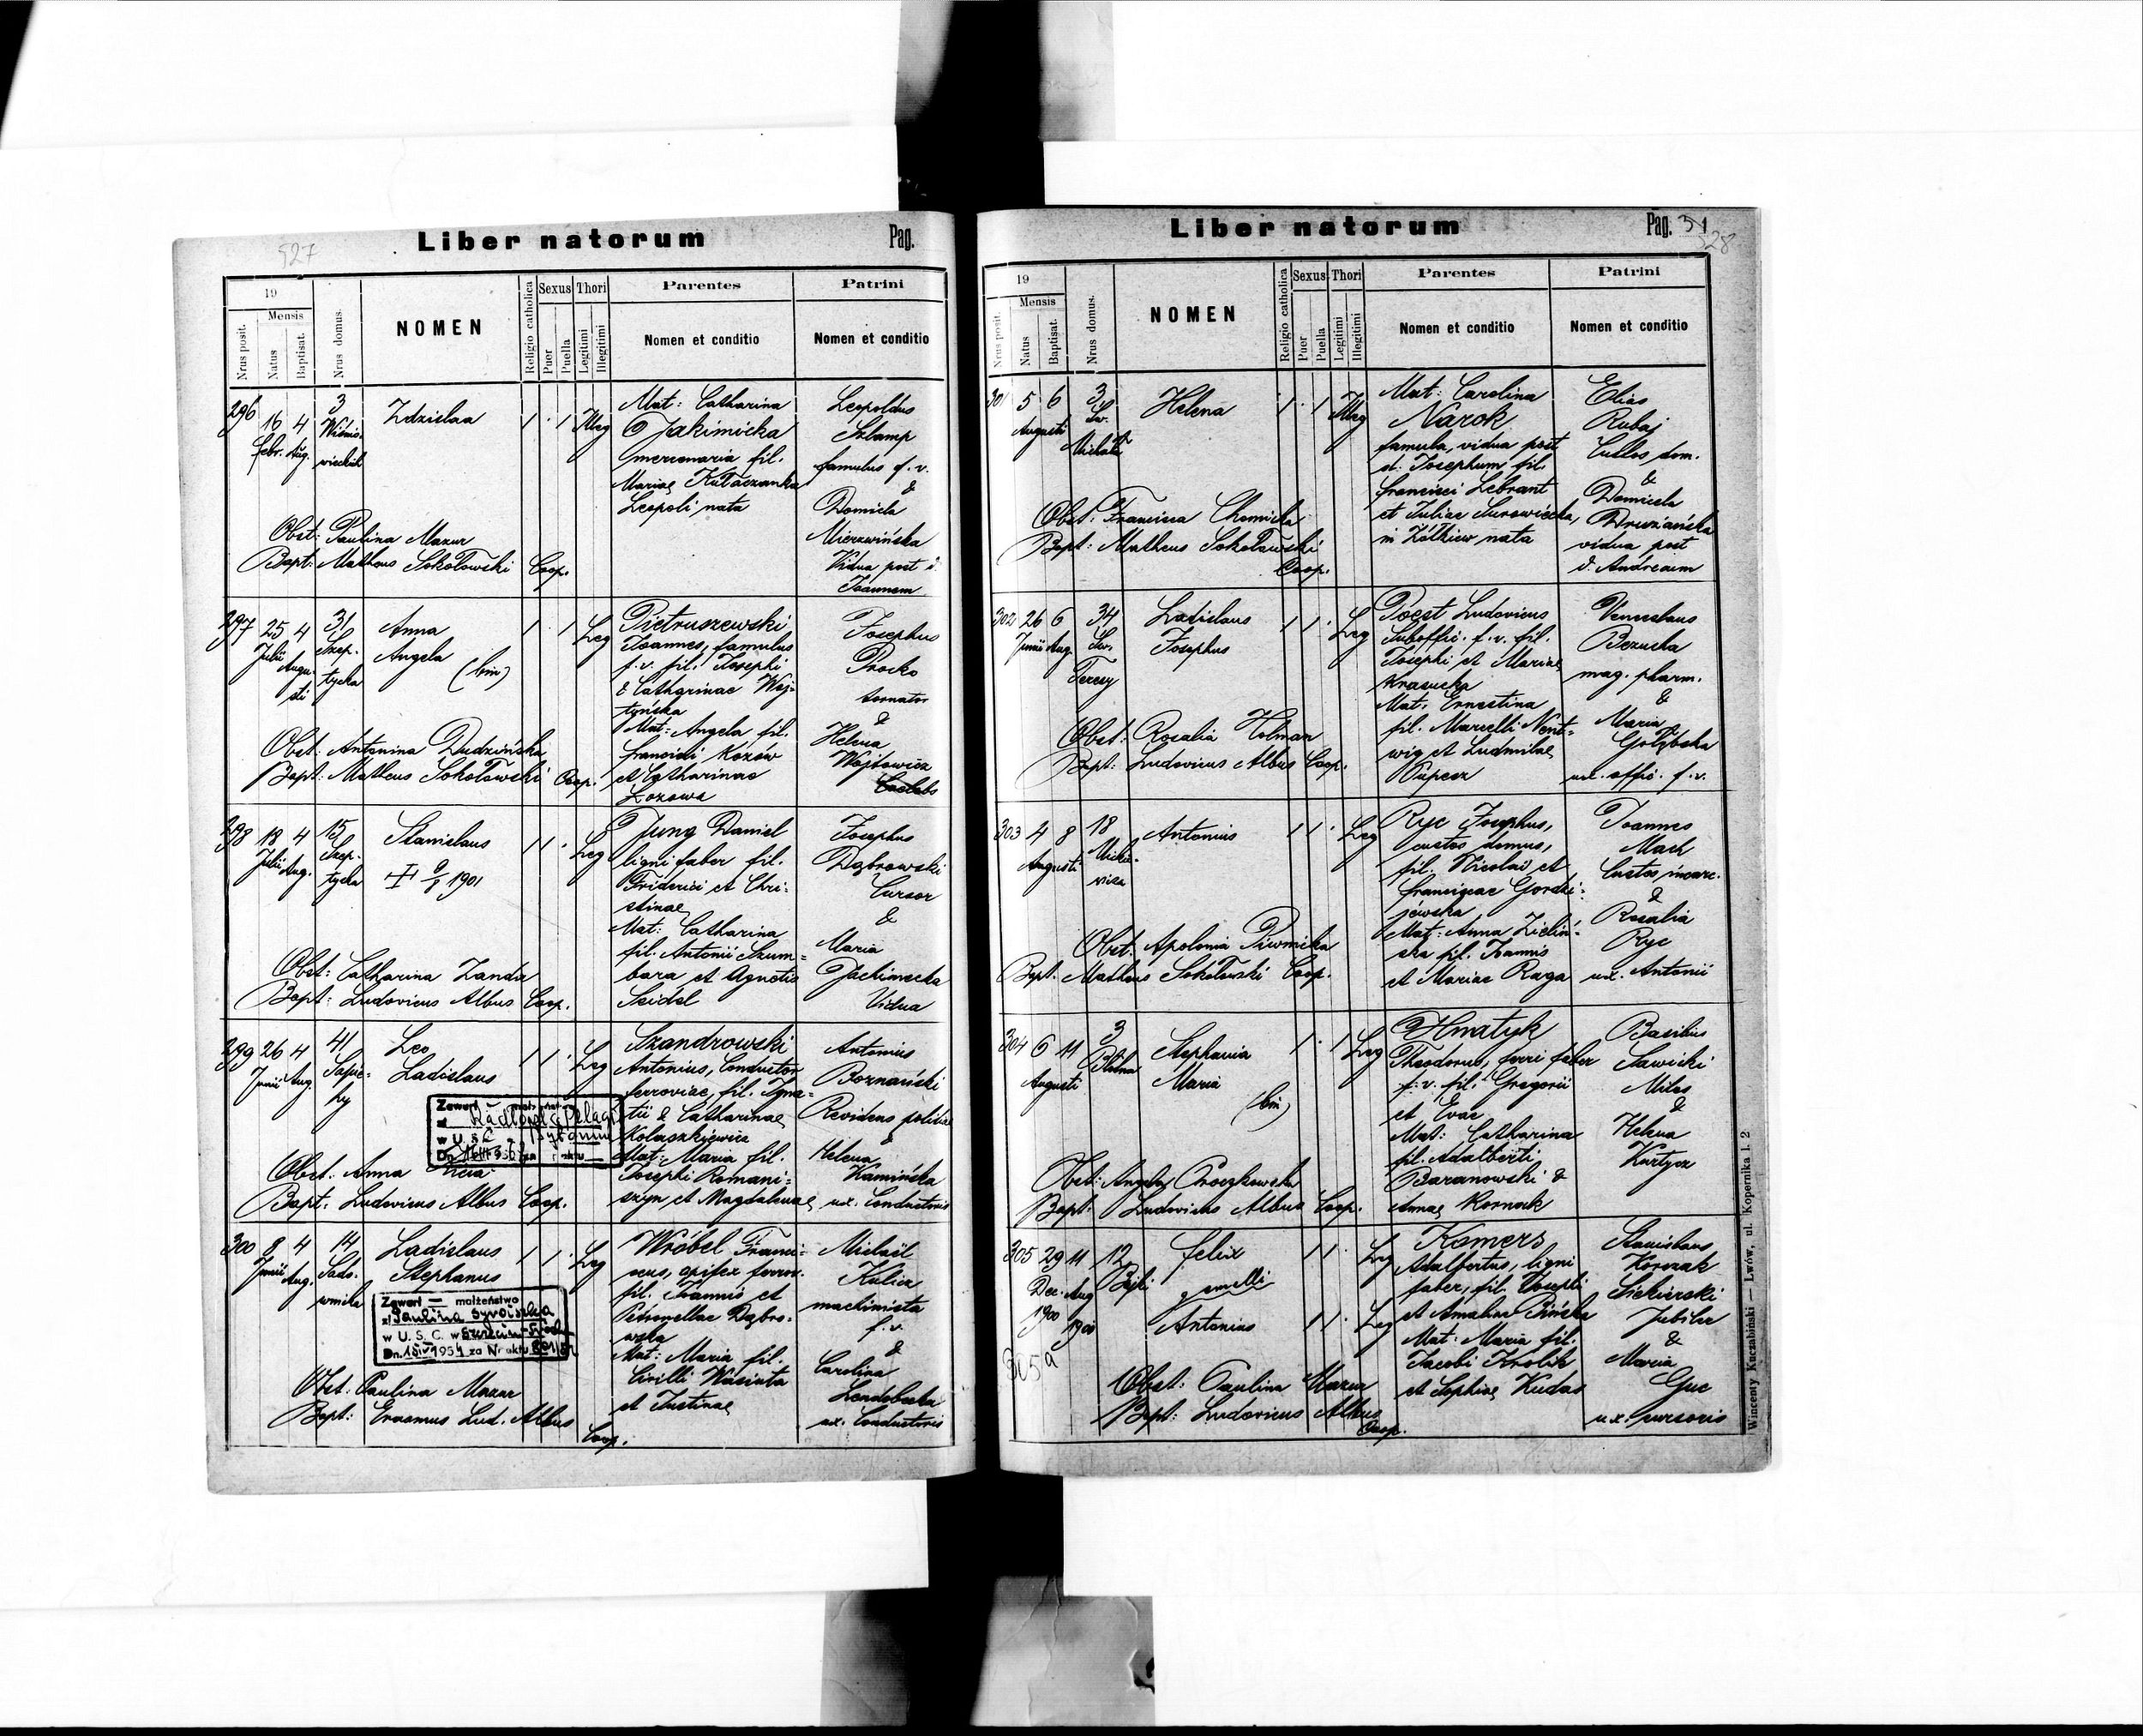 527
Liber natorum
Pag.
19
Mensis
Nrus posit.
Natus
Baptisat.
Nrus domus.
NOMEN
Religio catholica
Sexus
Puer
Puella
Thori
Legitimi
Illegitimi
Parentes
Nomen et conditio
Patrini
Nomen et conditio
296
16 Febr.
4 Aug.
3
Wiśnio-
wieckich
Zdzislaa
1 · 1 Illeg
Mat: Catharina
Jakimicka
mercenaria fil.
Mariae
Leopoli nata
Leopoldus
Szlamp
famulus f. v.
&
Domicela
Mierzwińska
Vidua post d.
Joannem
Obst: Paulina Mazur
Bapt: Matheus Sokołowski Coop.
297
25 Julii
4 Augu-
sti
31
Szep-
tycka
Anna
Angela (bin)
1 1 Leg
Pietruszewski
Joannes, famulus
f. v. fil. Josephi
& Catharinae Woj-
tyńska
Mat: Angela fil.
Francisci Kozów
et Catharinae
Lozowa
Josephus
Procko
tornator
&
Helena
Wojtowicz
Obst: Antonina Dudzińska
Bapt: Matheus Sokołowski Coop.
298
18 Julii
4 Aug.
15
Szep-
tycka
Stanislaus
1901
1 1 · Leg
Jung Daniel
lignifaber fil.
Friderici et Chri-
stinae
Mat: Catharina
fil. Antonii Szum-
bara et Agnetis
Seidel
Josephus
Dąbrowski
Cursor
&
Maria
Jachimecka
Vidua
Obst: Catharina Zanda
Bapt: Ludovicus Albus Coop.
299
26 Junii
4 Aug.
41
Sapie-
hy
Leo
Ladislaus
1 1 · Leg
Szandrowski
Antonius, Conductor
ferroviae, fil. Igna-
tii & Catharinae
Kolaszkiewicz
Mat: Maria fil.
Josephi Romani-
szyn et Magdalenae
Antonius
Poznański
Revidens politiae
&
Helena
Kamińska
ux. Conductoris
Zawarł
w U. S. C.
Obst: Anna
Bapt: Ludovicus Albus Coop.
300
8 Junii
4 Aug.
14
Sado-
wnicka
Ladislaus
Stephanus
1 1 · Leg
Wróbel Franci-
scus, opifex ferrov.
fil. Joannis et
Petronellae Dąbro-
wska
Mat: Maria fil.
Cirilli Wasiuta
et Justinae
Michaël
Kulica
machinista
f. v.
&
Carolina
ux. Conductoris
Zawarł — małżeństwo
z Paulina
w U. S. C. w Szczecin-
Dn. 1954 za Nr aktu
Obst: Paulina Mazur
Bapt: Erasmus Lud. Albus
Coop.
Liber natorum
Pag. 31
528
19
Mensis
Nrus posit.
Natus
Baptisat.
Nrus domus.
NOMEN
Religio catholica
Sexus
Puer
Puella
Thori
Legitimi
Illegitimi
Parentes
Nomen et conditio
Patrini
Nomen et conditio
301
5 6
Augusti
3
Św.
Michała
Helena
1 · 1 Illeg
Mat: Carolina
Narok
famula, vidua post
d. Josephum fil.
Francisci Lebrant
et Juliae Surowiecka,
in Żółkiew nata
Elias
Rubaj
Custos dom.
&
Domicela
Druziańska
vidua post
d. Andream
Obst: Francisca Chomicka
Bapt: Matheus Sokołowski
Coop.
302
26 Junii
6 Aug.
34
Św.
Teresy
Ladislaus
Josephus
1 1 · Leg
Poest Ludovicus
Suboffic. f. v. fil.
Josephi et Mariae
Krasucka
Mat: Ernestina
fil. Marcelli Nent-
wig et Ludmilae
Pupecz
Venceslaus
Bezucha
mag. pharm.
&
Maria
Gołębska
ux. offic. f. v.
Obst: Rosalia Holman
Bapt: Ludovicus Albus Coop.
303
4 8
Augusti
18
Micke-
vicza
Antonius
1 1 · Leg
Ryc Josephus,
custos domus,
fil. Nicolai et
Franciscae Gordzi-
jewska
Mat: Anna Zieliń-
ska fil. Joannis
et Mariae Raga
Joannes
Mach
Custos incarc.
&
Rosalia
Ryc
ux. Antonii
Obst: Apolonia Piwnicka
Bapt: Matheus Sokołowski Coop.
304
6 11
Augusti
3
Błotna
Stephania
Maria
(bin)
1 · 1 Leg
Hnatyk
Theodorus, ferri faber
f. v. fil. Gregorii
et Evae
Mat: Catharina
fil. Adalberti
Baranowski &
Annae Kornak
Basilius
Sawicki
Miles
&
Helena
Kurtycz
Obst: Angela
Bapt: Ludovicus Albus Coop.
305
29 Dec. 1900
11 Aug 1900
12
Bajki
Felix
gemelli
Antonius
1 1 · Leg
1 1 · Leg
Komers
Adalbertus, ligni
faber, fil. Josephi
et Amaliae Bińska
Mat: Maria fil.
Jacobi Krolik
et Sophiae Kudas
Stanislaus
Korczak
Siekierski
Jubiler
&
Maria
Guc
ux. cursoris
305a
Obst: Paulina Mazur
Bapt: Ludovicus Albus
Coop.
Wincenty Kuczabiński — Lwów, ul. Kopernika l. 2